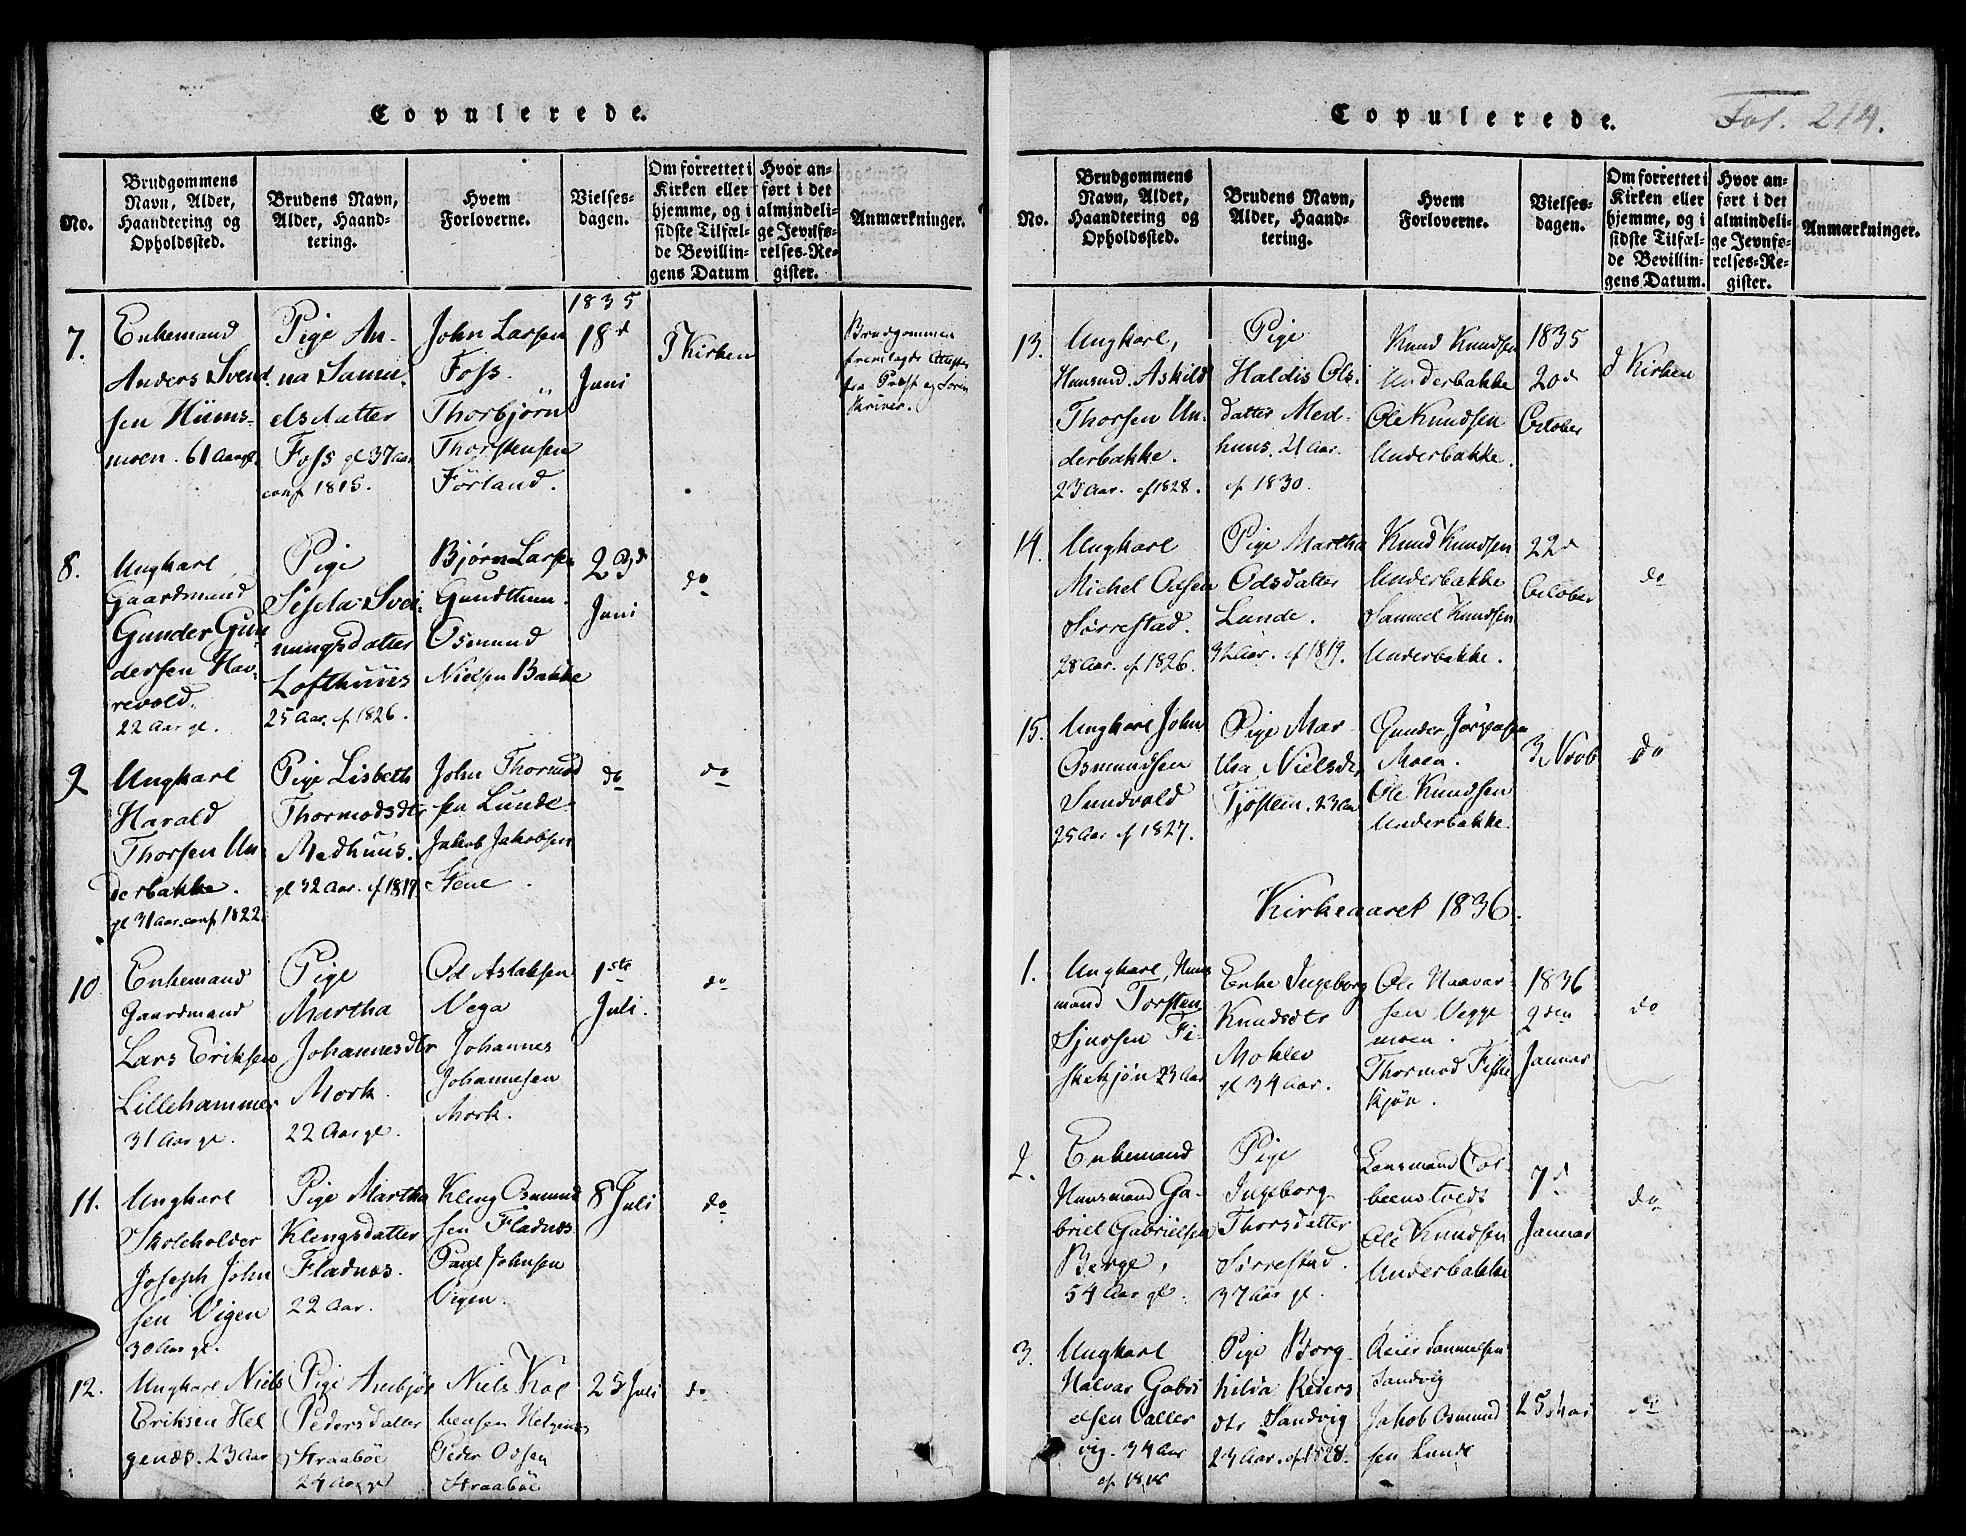 Copulerede.
No.
Brudgommens
Navn, Alder,
Haandtering og
Opholdssted.
Brudens Navn,
Alder, Haand-
tering.
Hvem
Forloverne.
Vielses-
dagen.
Om forrettet i
Kirken eller
hjemme, og i
sidste Tilfæl-
de Bevillin-
gens Datum
Hvor an-
ført i det
almindeli-
ge Jevnfø-
relses-Re-
gister.
Anmærkninger.
7.
Enkemand
Anders Svend
sen Hums-
moen. 61 Aar gl.
Pige An-
na Samu-
elsdatter
Foss gl 37 aar
conf 1815.
John Larsen
Foss.
Thorbjörn
Thorstensen
Förland.
1835
18d
Juni
I Kirken
Brudgommen
fremlagde Attester
fra Præst og Soren
skriver.
8.
Ungkarl
Gaardmand
Gunder Gun
dersen Hav-
revold.
22 Aar gl.
Pige
Sissela Svei-
nungsdatter
Lofthuus
25 Aar. cf. 1826.
Björn Larsen
Gundthun.
Osmund
Nielsen Bakke
Juni
do
9
Ungkarl
Harald
Thorsen Un-
derbakke.
gl 31 Aar. conf 1822.
Pige Lisbeth
Thormodsdtr
Medhuus.
gl 32 Aar. cf 1819
John Thormod
sen Lunde
Jakob Jakobsen
Stene.
do
do
10
Enkemand
Gaardmand
Lars Eriksen
Lillehammer
31 Aar gl.
Pige
Martha
Johannesdtr
Mork.
22 Aar gl.
Od Aslaksen
Vega
Johannes
Johannesen
Mork.
1ste
Juli.
do
11.
Ungkarl
Skoleholder
Joseph John
sen Vigen
30 Aar gl.
Pige Martha
Klengsdatter
Fladnæs.
22 Aar.
Kleng Osmund
sen Fladnæs
Paul Johnsen
Vigen.
8 Juli
do
12.
Ungkarl Niels
Eriksen Hel
genæs. 23 Aar
Pige Anbjör
Pedersdatter
Straaböe
24 Aar gl
Niels Kol
bensen Helgenæs
Peder Odsen
Straaböe
25 Juli
do
Copulerede.
Fol. 214.
No.
Brudgommens
Navn, Alder,
Haandtering og
Opholdssted.
Brudens Navn,
Alder, Haand-
tering.
Hvem
Forloverne.
Vielses-
dagen.
Om forrettet i
Kirken eller
hjemme, og i
sidste Tilfæl-
de Bevillin-
gens Datum.
Hvor an-
ført i det
almindeli-
ge Jevnfø-
relses-Re-
gister.
Anmærkninger.
13.
Ungkarl,
Huusmd. Askild
Thorsen Un-
derbakke.
23 Aar. cf 1828.
Pige
Haldis Ols-
datter Med-
huus. 21 Aar.
cf 1830.
Knud Knudsen
Underbakke
Ole Knudsen
Underbakke.
1835
20d
October
I Kirken
14.
Ungkarl
Michel Olsen
Sörrestad.
28 Aar. cf 1826.
Pige Martha
Odsdatter
Lunde.
32 Aar. cf 1819.
Knud Knudsen
Underbakke
Samuel Knudsen
Underbakke.
22d
October
do
15.
Ungkarl John
Osmundsen
Sundvold
25 Aar cf 1827.
Pige Mar-
tha Nielsdtr
Tjöstem. 23 Aar
Gunder Jörgensen
Moen.
Ole Knudsen
Underbakke.
3 Novb
do
Kirkeaaret 1836.
1.
Ungkarl, Huus
mand Torsten
Sjursen Fi-
skekjön 23 Aar
Enke Ingeborg
Knudsdtr
Moklev
gl 34 Aar.
Ole Haavar
sen Vegge
moen.
Thormod Fiske
kjön.
1836
2den
Januar
do
2.
Enkemand
Huusmand Ga-
briel Gabrielsen
Berge,
54 Aar gl.
Pige
Ingeborg
Thorsdatter
Sörrestad.
37 Aar gl.
Lensmand Col
beenstvedt
Ole Knudsen
Underbakke
7d
Januar
do
3.
Ungkarl
Halvar Gabri
elsen Valler
vig. 34 Aar
cf 1818
Pige Borg
hilda Reiers
dtr Sandvig
23 Aar. cf 1828.
Reier Samuelsen
Sandvig
Jakob Osmund
sen Lunde
do